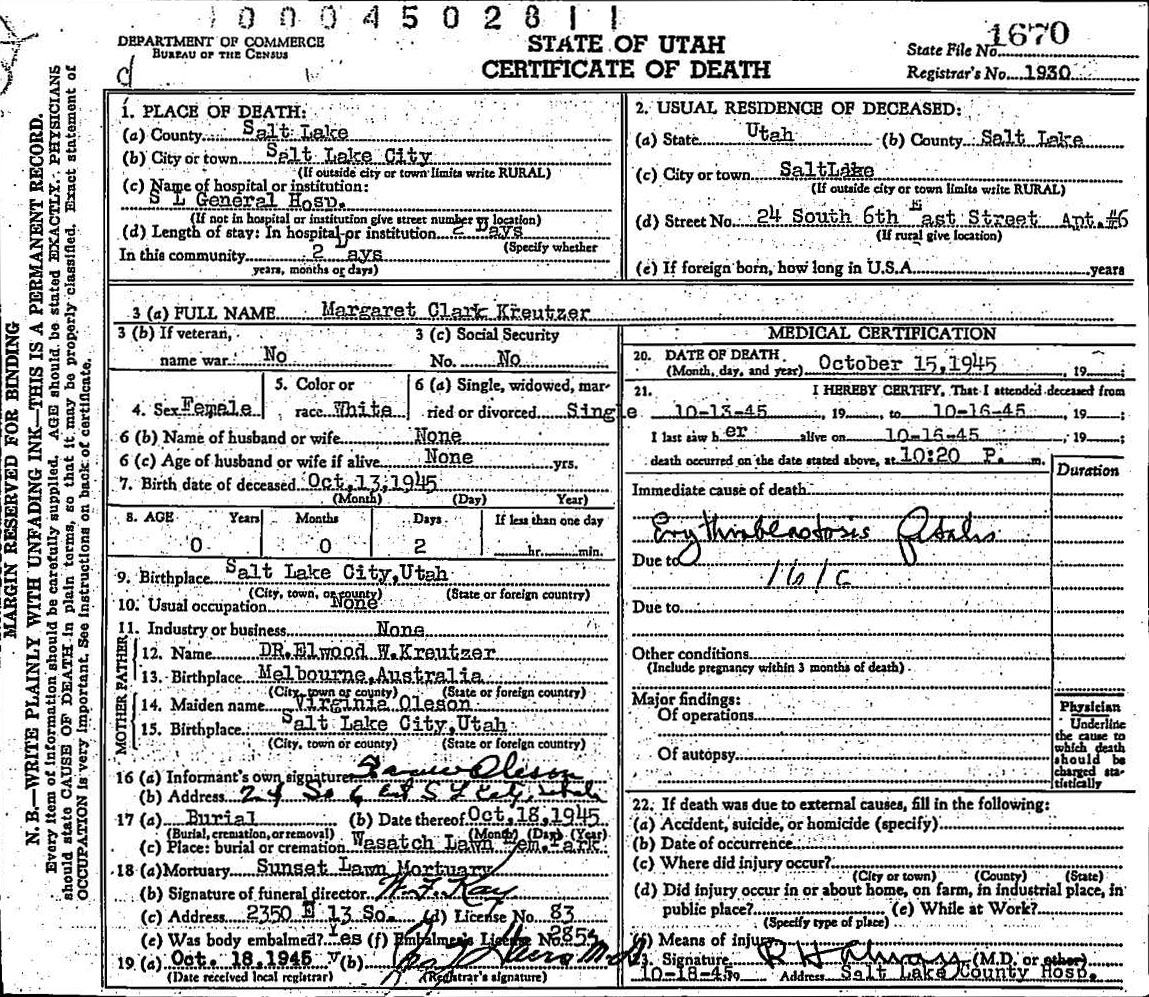 0 0 0 4 5 0 2 8 1 1
DEPARTMENT OF COMMERCE
BUREAU OF THE CENSUS
d
STATE OF UTAH
CERTIFICATE OF DEATH
State File No. 1670
Registrar's No. 1930
MARGIN RESERVED FOR BINDING
N. B.—WRITE PLAINLY WITH UNFADING INK—THIS IS A PERMANENT RECORD.
Every item of information should be carefully supplied. AGE should be stated EXACTLY. PHYSICIANS
should state CAUSE OF DEATH in plain terms, so that it may be properly classified. Exact statement of
OCCUPATION is very important. See instructions on back of certificate.
1. PLACE OF DEATH:
(a) County Salt Lake
(b) City or town Salt Lake City
(If outside city or town limits write RURAL)
(c) Name of hospital or institution:
S L General Hosp.
(If not in hospital or institution give street number or location)
(d) Length of stay: In hospital or institution 2 Days
(Specify whether
In this community 2 Days
years, months or days)
2. USUAL RESIDENCE OF DECEASED:
(a) State Utah (b) County Salt Lake
(c) City or town SaltLake
(If outside city or town limits write RURAL)
(d) Street No. 24 South 6th East Street Apt.#6
(If rural give location)
(e) If foreign born, how long in U.S.A. years
3 (a) FULL NAME Margaret Clark Kreutzer
3 (b) If veteran, 3 (c) Social Security
name war No No. No
4. Sex Female 5. Color or race White 6 (a) Single, widowed, married or divorced Single
6 (b) Name of husband or wife None
6 (c) Age of husband or wife if alive None yrs.
7. Birth date of deceased Oct,13,1945
(Month) (Day) Year)
8. AGE Years Months Days If less than one day
0 0 2 hr. min.
9. Birthplace Salt Lake City,Utah
(City, town, or county) (State or foreign country)
10. Usual occupation None
11. Industry or business None
FATHER
12. Name DR.Elwood W.Kreutzer
13. Birthplace Melbourne,Australia
(City, town or county) (State or foreign country)
MOTHER
14. Maiden name Virginia Oleson
15. Birthplace Salt Lake City,Utah
(City, town or county) (State or foreign country)
16 (a) Informant's own signature Oleson
(b) Address 24 So 6 East S L City, Utah
17 (a) Burial (b) Date thereof Oct,18,1945
(Burial, cremation, or removal) (Month) (Day) (Year)
(c) Place: burial or cremation Wasatch Lawn Mem.Park
18 (a) Mortuary Sunset Lawn Mortuary
(b) Signature of funeral director Kay
(c) Address 2350 E 13 So. (d) License No. 83
(e) Was body embalmed? Yes (f) Embalmer's License No. 285
19 (a) Oct. 18,1945 (b)
(Date received local registrar) (Registrar's signature)
MEDICAL CERTIFICATION
20. DATE OF DEATH
(Month, day, and year) October 15,1945, 19
21. I HEREBY CERTIFY, That I attended deceased from
10-13-45, 19 to 10-16-45, 19 ;
I last saw her alive on 10-16-45, 19 ;
death occurred on the date stated above, at 10:20 P. m.
Duration
Immediate cause of death
Erythroblastosis fetalis
Due to
161c
Due to
Other conditions
(Include pregnancy within 3 months of death)
Major findings:
Of operations
Of autopsy
Physician
Underline
the cause to
which death
should be
charged sta-
tistically
22. If death was due to external causes, fill in the following:
(a) Accident, suicide, or homicide (specify)
(b) Date of occurrence
(c) Where did injury occur?
(City or town) (County) (State)
(d) Did injury occur in or about home, on farm, in industrial place, in
public place? (e) While at Work?
(Specify type of place)
(f) Means of injury
23. Signature R H (M.D. or other)
10-18-45 19 Address Salt Lake County Hosp.